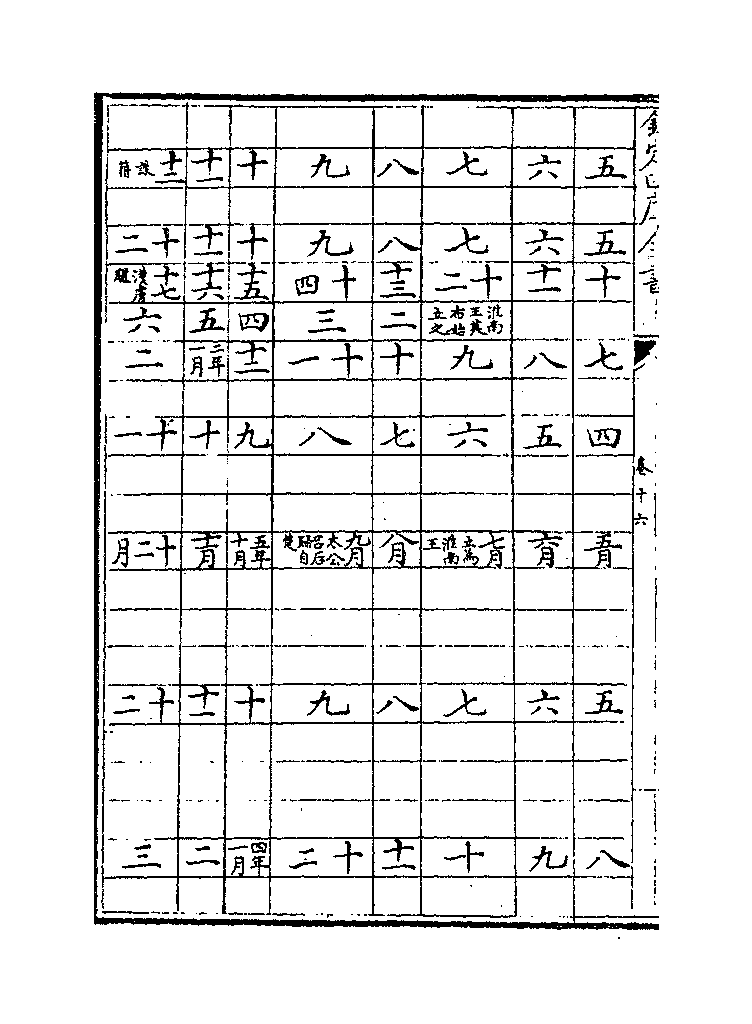 欽定四庫全書
卷十六
五 五 十 七 四 五月 五 八
六 六 十一 八 五 六月 六 九
七 七 十二 淮南王英布始立之 九 六 七月立為淮南王 七 十
八 八 十三 二 十 七 八月 八 十一
九 九 十四 三 十一 八 九月太公呂后歸自楚 九 十二
十 十 十五 四 十二 九 五年十月 十 四年一月
十一 十一 十六 五 三年一月 十 十一月 十一 二
十二誅籍 十二 十七漢虜驩 六 二 十一 十二月 十二 三